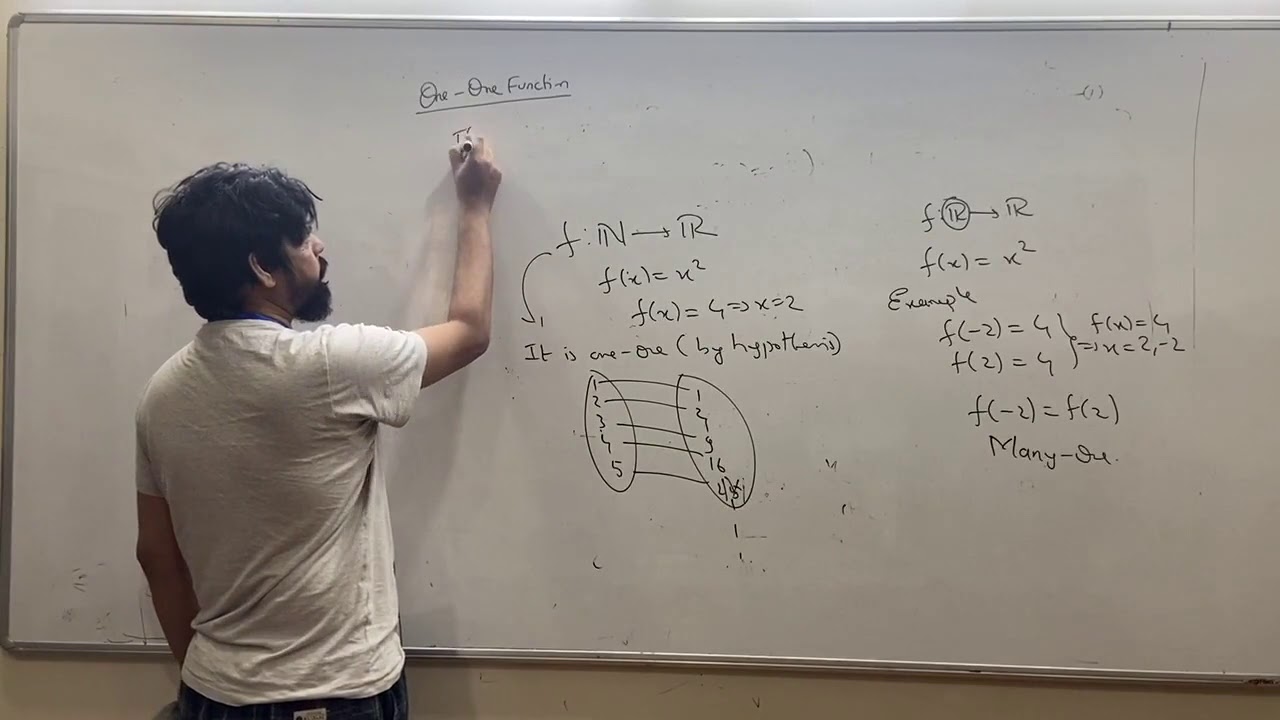 One-One Function
f: ℕ → ℝ
f(x) = x²
f(x) = 4 => x=2
It is one-one (by hypothesis)
1 1
2 4
3 9
4 16
5
f: ℝ → ℝ
f(x) = x²
Example
f(-2) = 4
f(2) = 4
f(x) = 4
=> x = 2, -2
f(-2) = f(2)
Many-One.